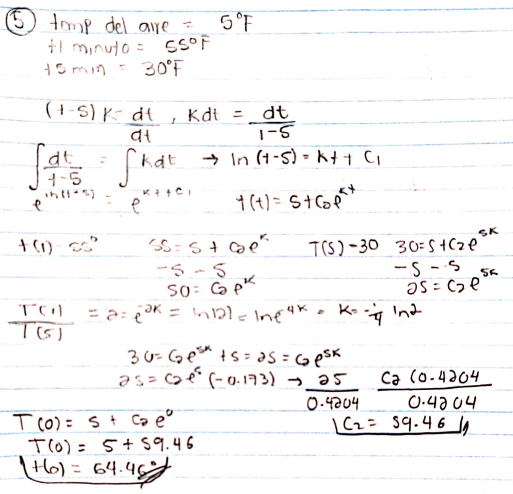 ⑤ temp del aire = 5°F
t1 minuto = 55°F
t5 min = 30°F
(t-5) K = dt/dt , Kdt = dt/1-5
∫ dt/t-5 = ∫ Kdt → ln (t-5) = kt + C1
e^ln(t-5) = e^k+tc1 t(t) = 5+C2e^kt
t(1) = 55° 55 = 5 + C2e^k T(5)-30 30=5+C2e^5K
-5 -5 -5 -5
50 = C2e^K 25 = C2e^5K
T(1)/T(5) = 2 = e^-2K = ln|2| = lne^4K = K = -1/4 ln2
30 = C2e^5K +5 = 25 = C2e^5K
25 = C2e^5 (-0.173) → 25/0.4204 C2(0.4204/0.4204
T(0) = 5 + C2e^0 C2 = 59.46
T(0) = 5 + 59.46
t(0) = 64.46°